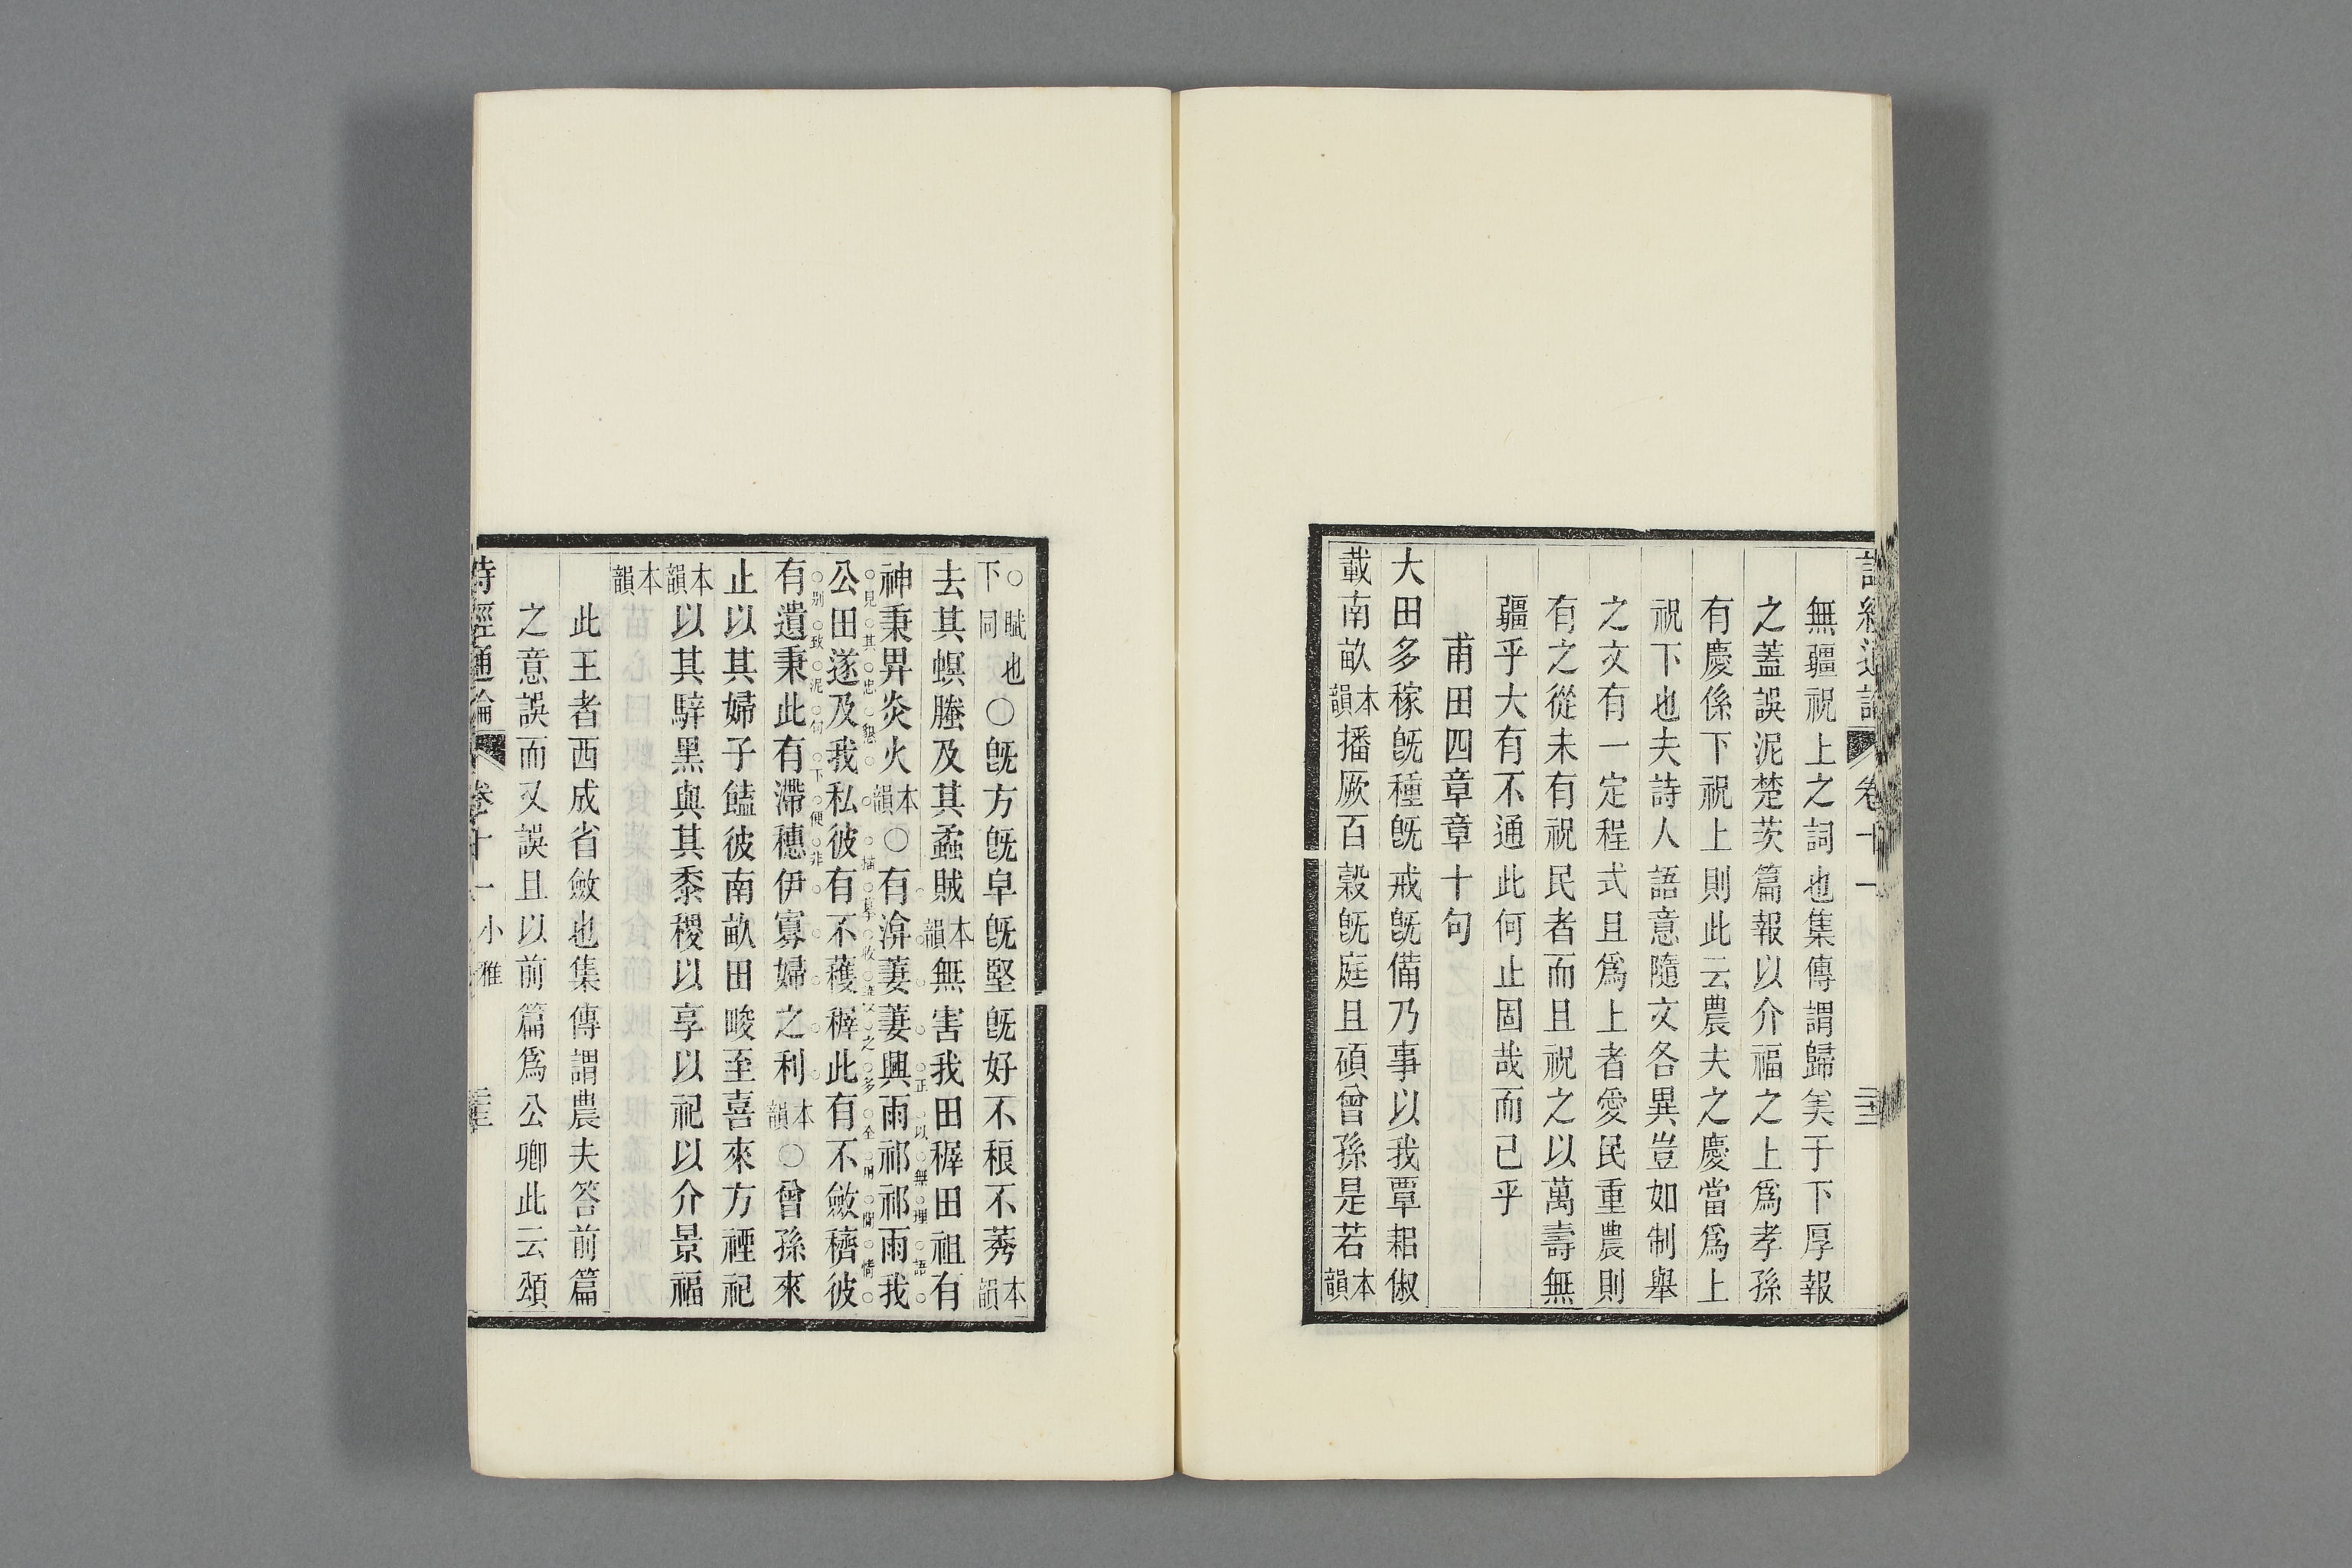 詩經通論 卷十一 二十二
無疆祝上之詞也集傳謂歸美于下厚報
之蓋誤泥楚茨篇報以介福之上爲孝孫
有慶係下祝上則此云農夫之慶當爲上
祝下也夫詩人語意隨文各異豈如制舉
之文有一定程式且爲上者愛民重農則
有之從未有祝民者而且祝之以萬壽無
疆乎大有不通此何止固哉而已乎
甫田四章章十句
大田多稼旣種旣戒旣備乃事以我覃耜俶
載南畝本韻播厥百穀旣庭且碩曾孫是若本韻
○賦也下同○旣方旣皁旣堅旣好不稂不莠本韻
去其螟螣及其蟊賊本韻無害我田穉田祖有
正以無理語
神秉畀炎火本韻○有渰萋萋興雨祁祁雨我
見其忠懇描摹收穫之多全用閒情
公田遂及我私彼有不穫穉此有不斂穧彼
別致泥句下便非
有遺秉此有滯穗伊寡婦之利本韻○曾孫來
止以其婦子饁彼南畝田畯至喜來方禋祀
本韻以其騂黑與其黍稷以享以祀以介景福
本韻
此王者西成省斂也集傳謂農夫答前篇
之意誤而又誤且以前篇爲公卿此云頌
詩經通論 卷十一 小雅